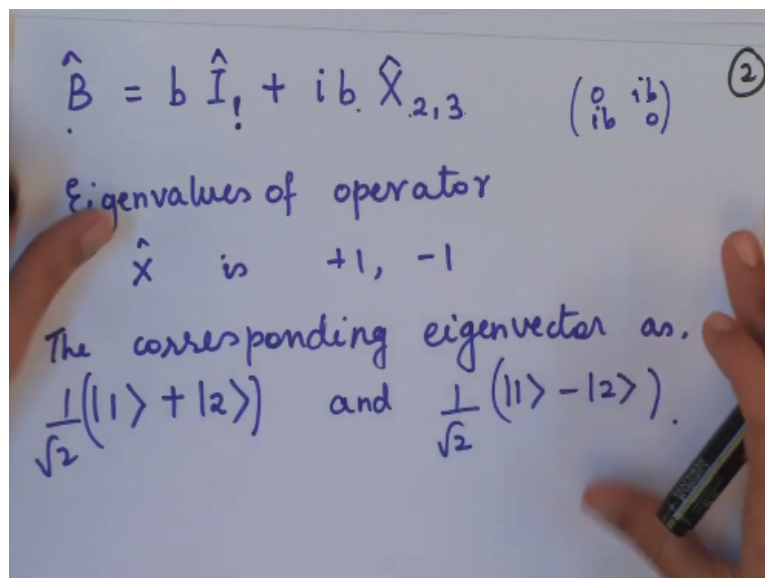 B̂ = b Î₁ + i b X̂₂,₃ (0 ib ②
ib 0)
Eigenvalues of operator
X̂ is +1, -1
The corresponding eigenvector as.
1/√2 (|1⟩ + |2⟩) and 1/√2 (|1⟩ - |2⟩).